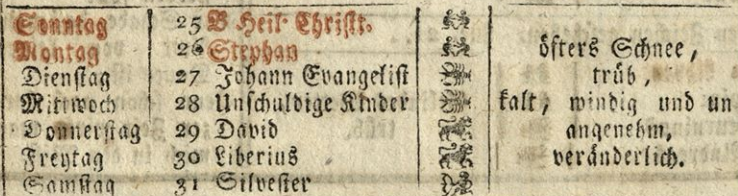 Sonntag 25 B Heil. Christt.
Montag 26 Stephan öfters Schnee,
Dienstag 27 Johann Evangelist trüb,
Mittwoch 28 Unschuldige Kinder kalt, windig und un
Donnerstag 29 David angenehm,
Freytag 30 Liberius veränderlich.
Samstag 31 Silvester